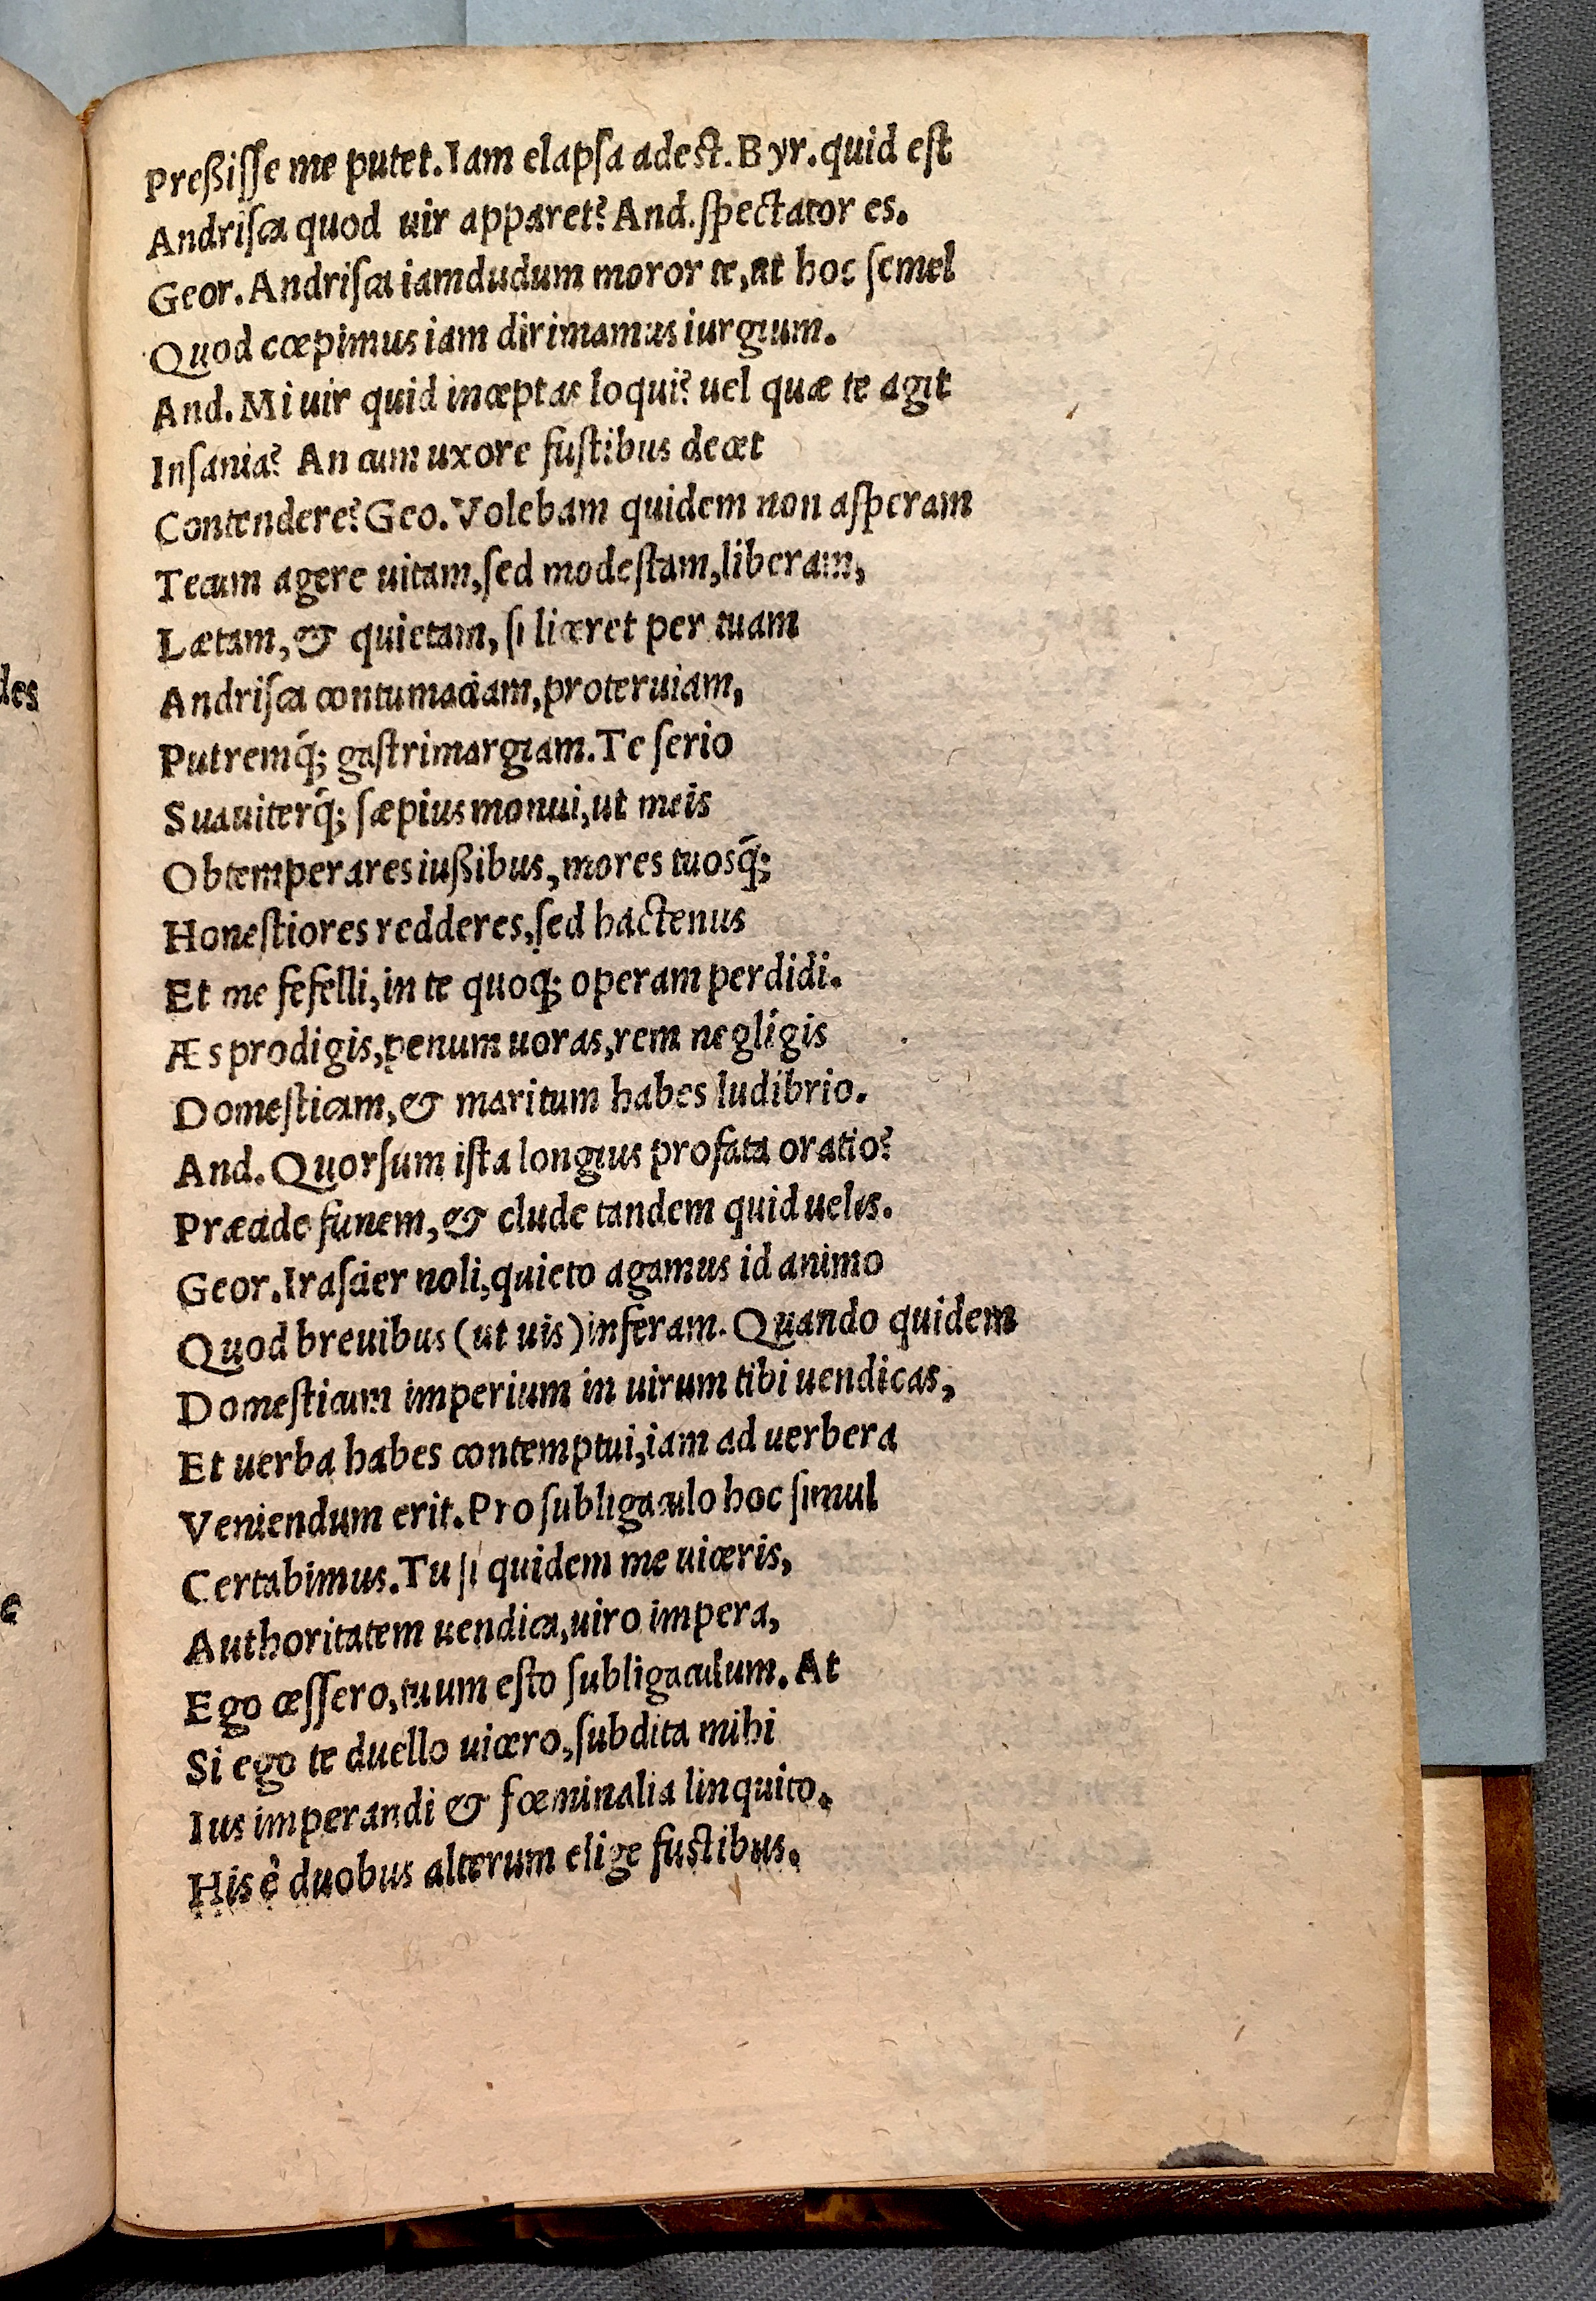 Preßiſſe me putet. Iam elapſa adeſt. Byr. quid eſt
Andriſca quod uir apparet? And. ſpectator es.
Geor. Andriſca iamdudum moror te, at hoc ſemel
Quod cœpimus iam dirimamus iurgium.
And. Mi uir quid ineptas loqui? uel quæ te agit
Inſania? An cum uxore fuſtibus decet
Contendere? Geo. Volebam quidem non aſperam
Tecum agere uitam, ſed modeſtam, liberam,
Lætam, & quietam, ſi liceret per tuam
Andriſca contumaciam, proteruiam,
Putremq́; gaſtrimargiam. Te ſerio
Suauiterq́; ſæpius monui, ut meis
Obtemperares iußibus, mores tuosq́;
Honeſtiores redderes, ſed hactenus
Et me fefelli, in te quoq; operam perdidi.
Æs prodigis, penum uoras, rem negligis
Domeſticam, & maritum habes ludibrio.
And. Quorſum iſta longius profata oratio?
Præcide funem, & clude tandem quid uelis.
Geor. Iraſcier noli, quieto agamus id animo
Quod breuibus (ut uis) inferam. Quando quidem
Domeſticum imperium in uirum tibi uendicas,
Et uerba habes contemptui, iam ad uerbera
Veniendum erit. Pro ſubligaculo hoc ſimul
Certabimus. Tu ſi quidem me uiceris,
Authoritatem uendica, uiro impera,
Ego ceſſero, tuum eſto ſubligaculum. At
Si ego te duello uicero, ſubdita mihi
Ius imperandi & fœminalia linquito.
His è duobus alterum elige fuſtibus.
des
e